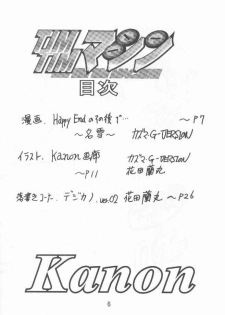 目次
漫画. Happy Endのその後で… ～P7
～名雪～ カズマ・G-VERSION
イラスト. Kanon画廊 カズマ・G-VERSION
～P11 花田蘭丸
落書きコーナー. デジカノ. ver.02 花田蘭丸 ～P26
Kanon
6